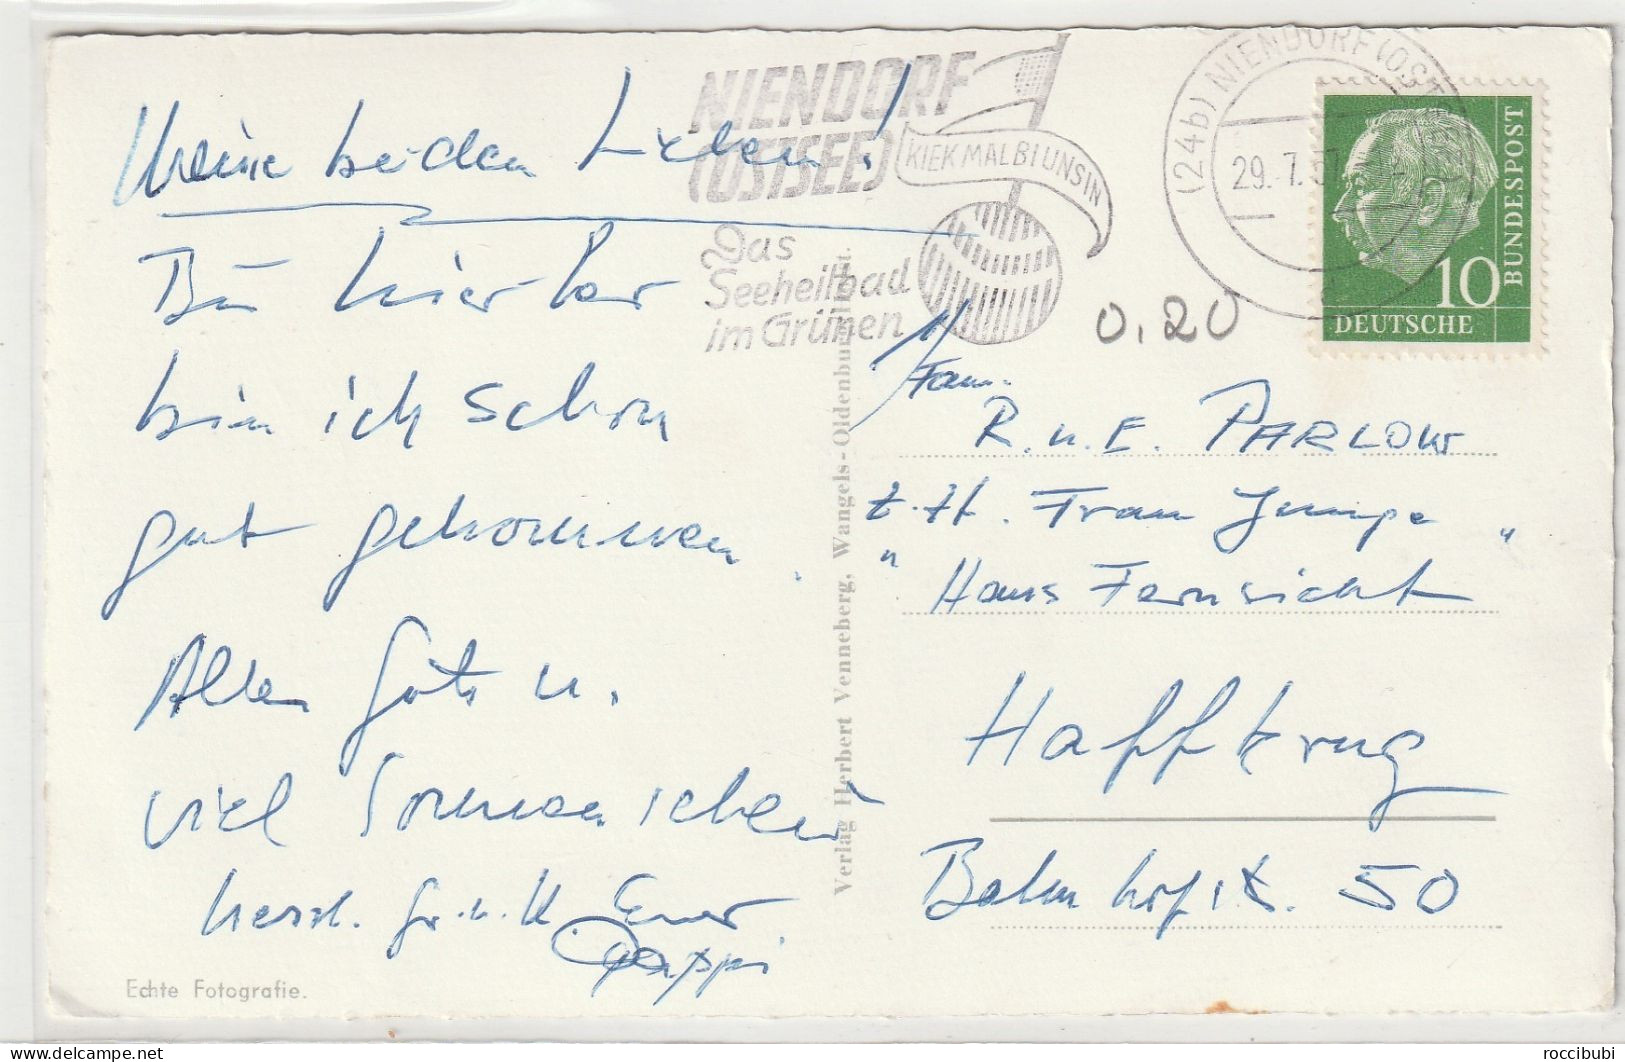 Meine beiden Lieben!
Bis hierher
bin ich schon
gut gekommen.
Alles Gute u.
viel Sonnenschein
herzl. Gr. u. K. Euer
Pappi
Echte Fotografie.
NIENDORF
(OSTSEE)
KIEK MAL BI UNS IN
Das
Seeheilbad
im Grünen
(24b) NIENDORF (OST
29.-7.57
BUNDESPOST
10
DEUTSCHE
0.20
Verlag Herbert Venneberg, Wangels-Oldenburg
Fam.
R. u. E. PARLOW
z. H. Frau Jumpe
"Haus Fernsicht"
Haffkrug
Bahnhofstr. 50
roccibubi
delcampe.net